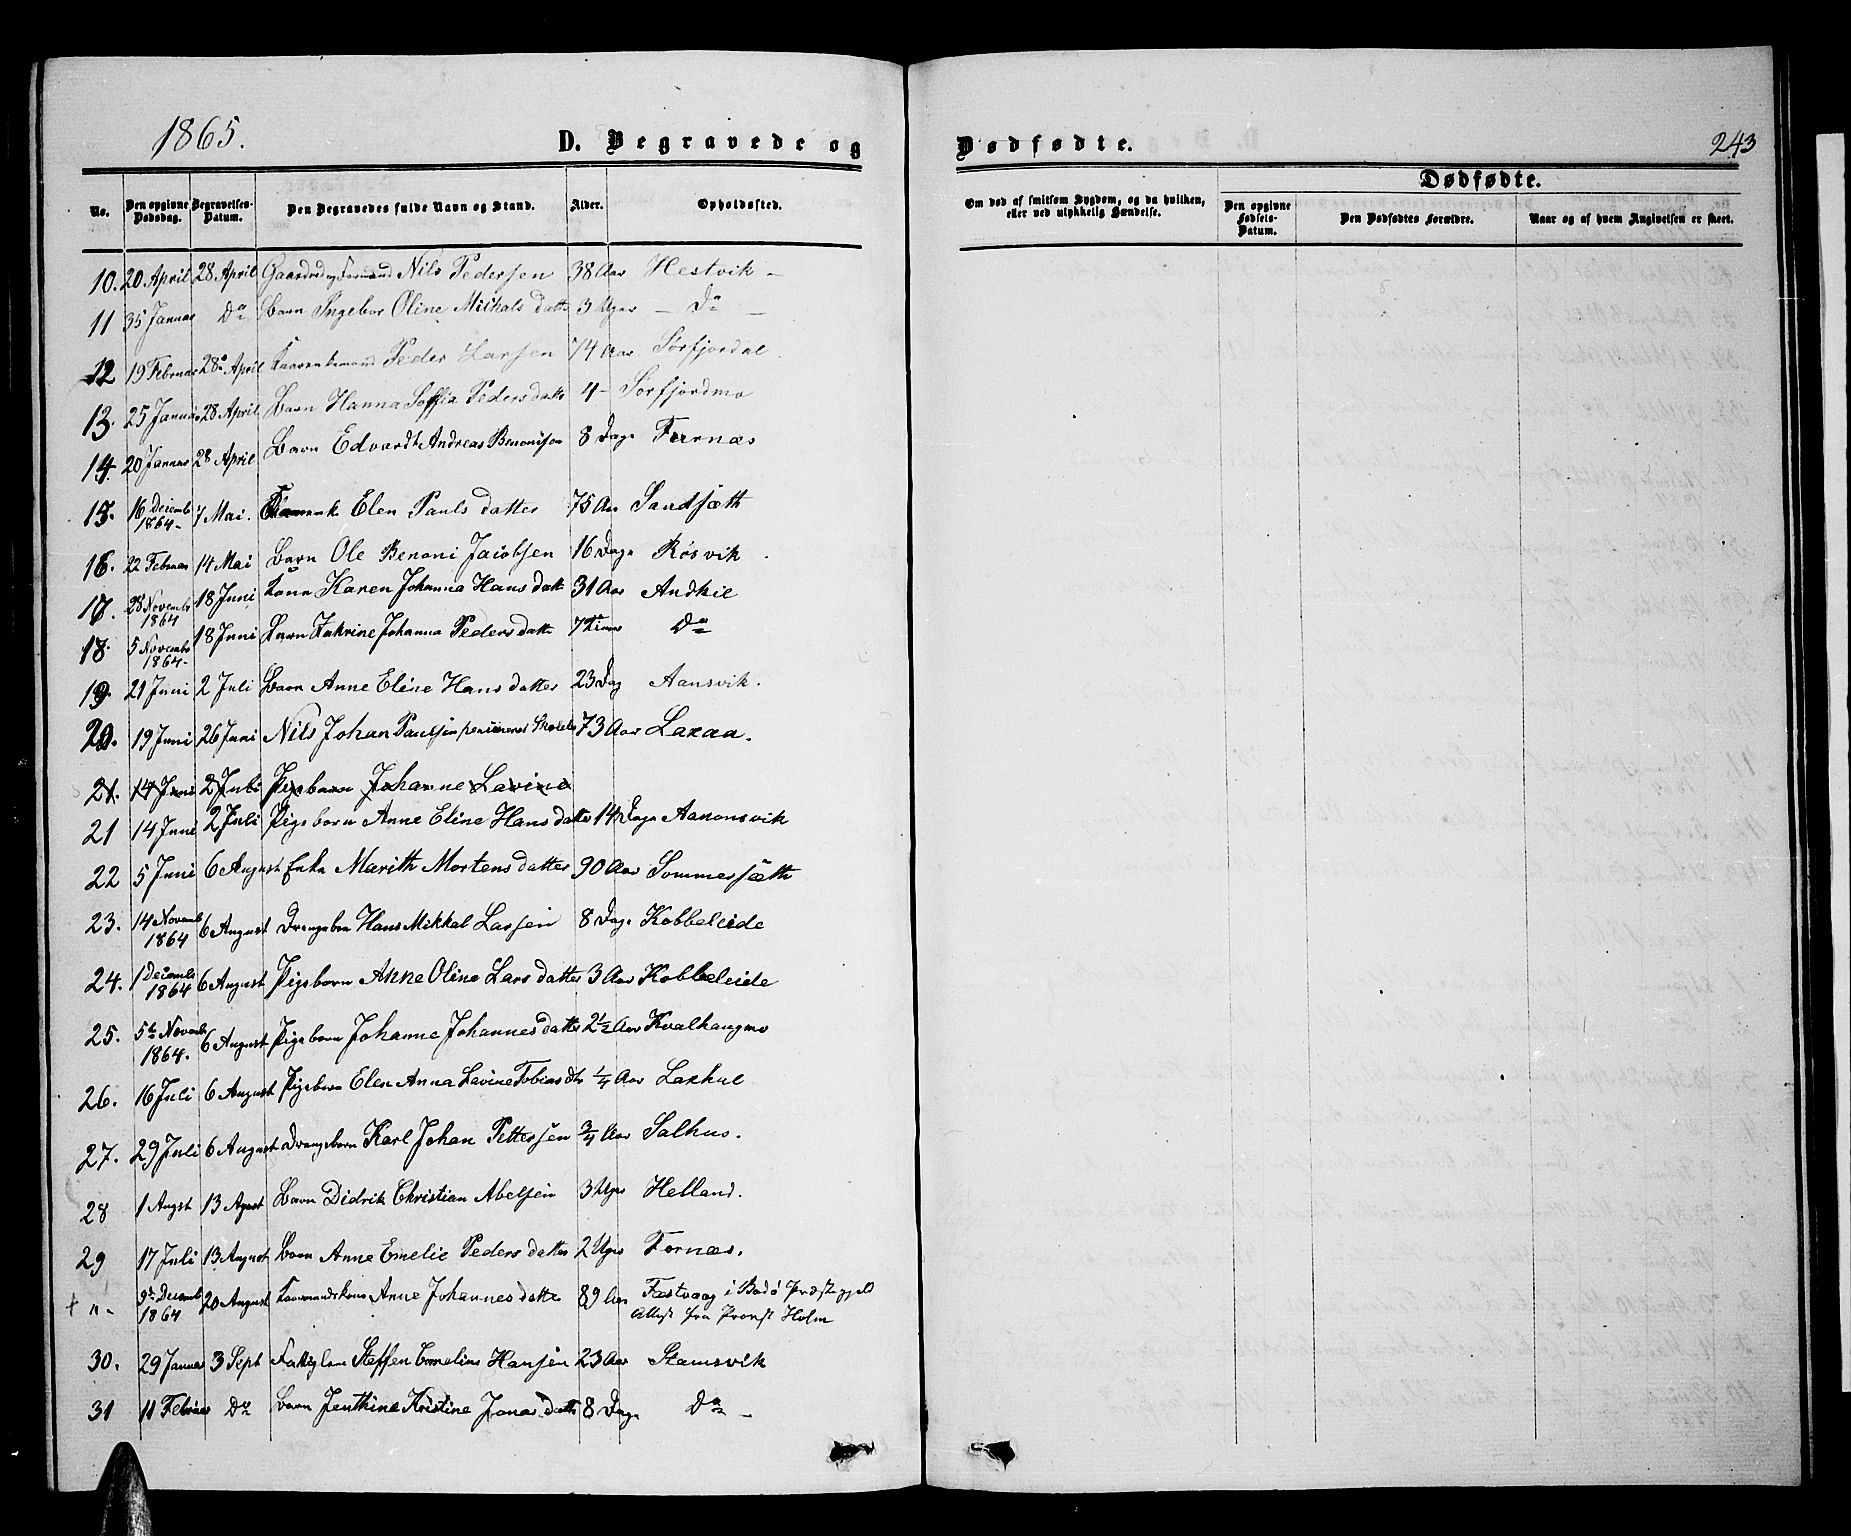 1865.
D. Begravede og
Dødfødte.
243
No. Den opgivne Dødsdag. Begravelses-Datum. Den Begravedes fulde Navn og Stand. Alder. Opholdssted.
Om død af smitsom Sygdom, og da hvilken, eller ved ulykkelig Hændelse.
Dødfødte.
Den opgivne Fødsels-Datum. Den Dødfødtes Forældre. Naar og af hvem Angivelsen er skeet.
10. 20 April 28 April Nils Pedersen 38 Aar Hestvik -
11 35 Januar Do Barn Ingebor Oline Mickals datte 3 Uger - Do -
12 19 Februar 28 April Peder Larsen 74 Aar Sörfjordal.
13. 25 Januar 28 April Barn Hanna Soffia Pedersdatte 4 - Sörfjordmo
14. 20 Januar 28 April Barn Edvardt Andreas Benonisen 8 Dage Fornæs
15. 16 Decemb 1864 - 7 Mai. Elen Pauls datter 75 Aar Sandsæth
16. 22 Februar 14 Mai Barn Ole Benoni Jacobsen 16 Dage Rösvik
17. 28 Novemb 1864 18 Juni Kone Karen Johanna Hans datte 31 Aar Andkil
18. 5 Novemb 1864 - 18 Juni Barn Kathrine Johanna Peders datte 7 Timer Do
19. 21 Juni 2 Juli Barn Anne Eline Hans datter 23 Dag Aansvik.
20. 19 Juni 26 Juni Nils Johan Paulsen 73 Aar Laxaa.
21. 14 Juni 2 Juli Pigebarn Johanne Lavine
21 14 Juni 2 Juli Pigebarn Anne Eline Hans datter 14 Dage Aanonsvik
22 5 Juni 6 August Enke Marith Mortens datter 90 Aar Sommersæth
23. 14 Novemb 1864 6 August Drengebrn Hans Mikkal Larsen 8 Dage Kobbeleide
24. 1 Decemb 1864 6 August Pigebarn Anne Oline Lars datter 3 Aar Kobbeleide
25. 5te Novemb 1864. 6 August Pigebarn Johanne Johannes datter 2½ Aar Kvalhaugmo
26. 16 Juli 6 August Pigebarn Elen Anna Lavine Tobias dtr ¼ Aar Laxhul
27. 29 Juli 6 August Drengebarn Karl Johan Pettersen ¾ Aar Salhus.
28 1 Augst 13 Agust Barn Didrik Christian Abelsen 3 Uger Helland.
29 17 Juli 13 August Barn Anne Emelie Peders datter 2 Uger Fornæs.
+ " - 9de Decemb 1864 20 August Kaarmandskone Anne Johannes datte 89 Aar Festvaag i Bodö Præstegjeld
Attest fra Provst Holm
30. 29 Januar 3 Sept Fattiglem Steffen Cornelius Hansen 23 Aar Stamsvik
31 11 Februar Do Barn Jenthine Kristine Jonas datte 8 Dage Do -